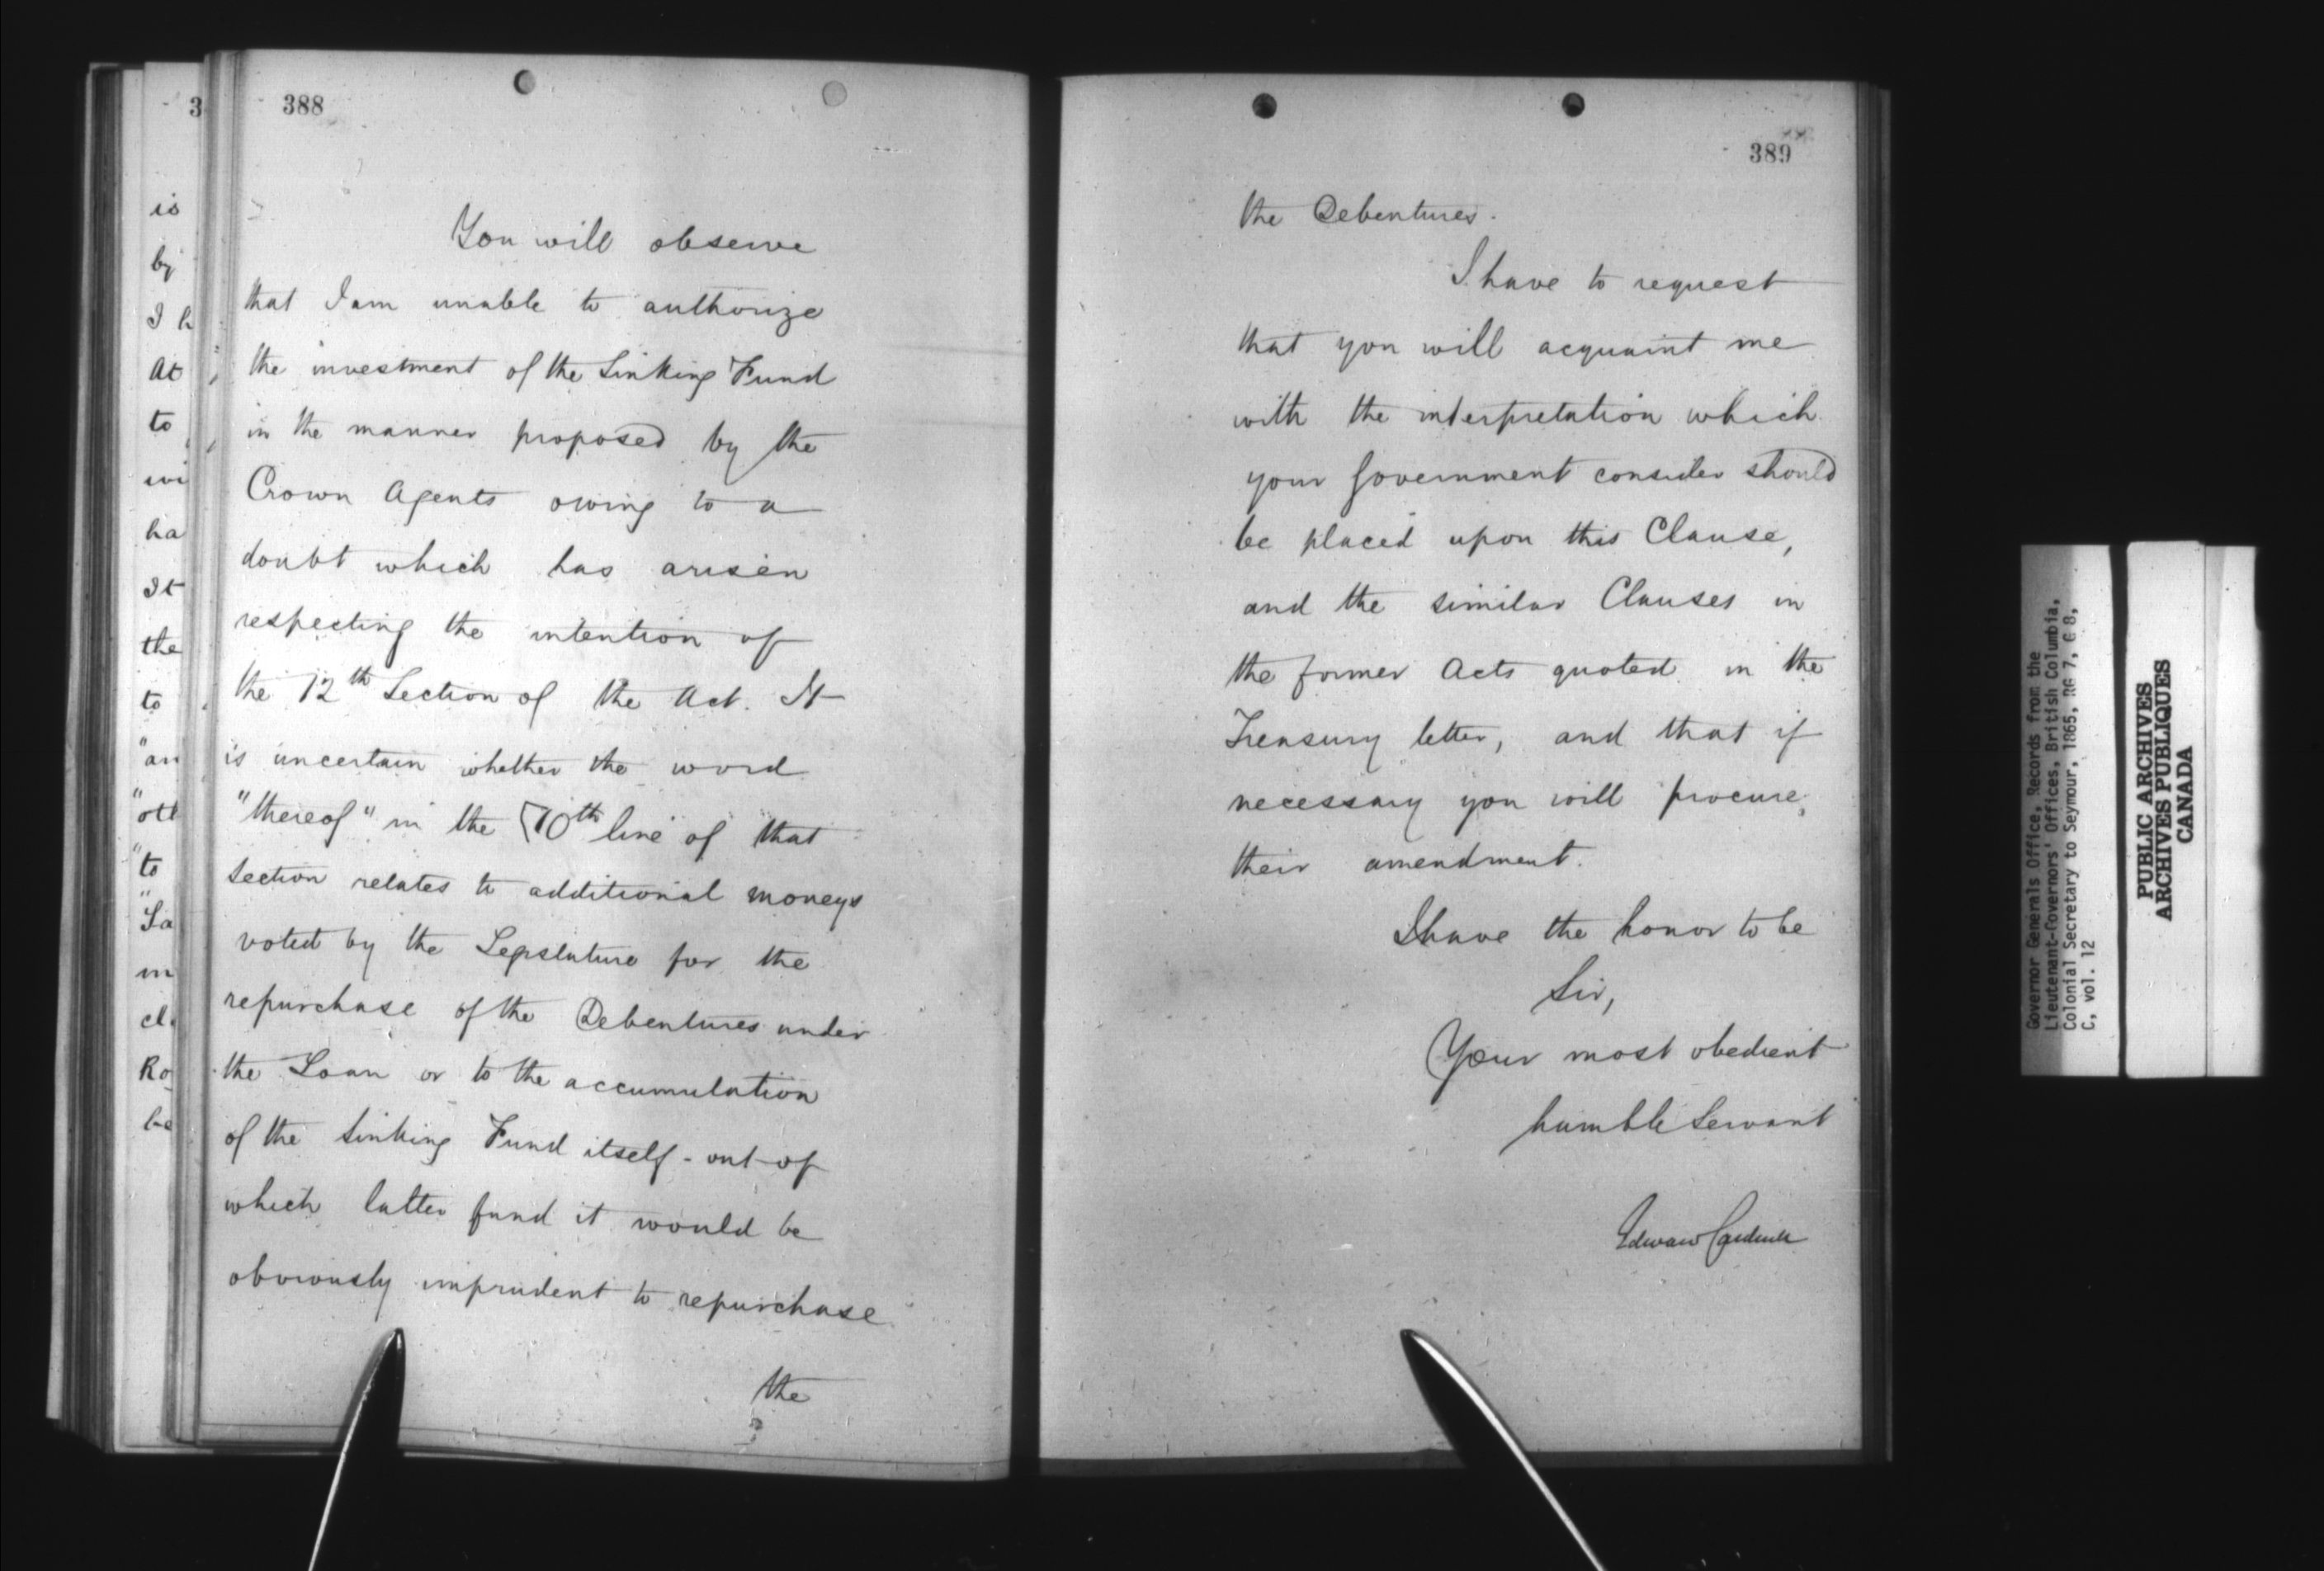 3
is
by
I h
At
to
wi
ha
It
the
to
"an
"oth
"to
"Sa
in
cl
Ro
be
388
You will observe
that I am unable to authorize
the investment of the Sinking Fund
in the manner proposed by the
Crown Agents owing to a
doubt which has arisen
respecting the intention of
the 12th Section of the Act. It
is uncertain whether the word
"thereof" in the 10th line of that
Section relates to additional moneys
voted by the Legislature for the
repurchase of the Debentures under
the Loan or to the accumulation
of the Sinking Fund itself - out of
which latter fund it would be
obviously imprudent to repurchase
the
389
the Debentures.
I have to request
that you will acquaint me
with the interpretation which
your Government consider should
be placed upon this Clause,
and the similar Clauses in
the former Acts quoted in the
Treasury letter, and that if
necessary you will procure
their amendment.
I have the honor to be
Sir,
Your most obedient
humble Servant
Edward Cardwell
Governor Generals Office, Records from the
Lieutenant-Governors' Offices, British Columbia,
Colonial Secretary to Seymour, 1865, RG 7, G 8,
C, vol. 12
PUBLIC ARCHIVES
ARCHIVES PUBLIQUES
CANADA